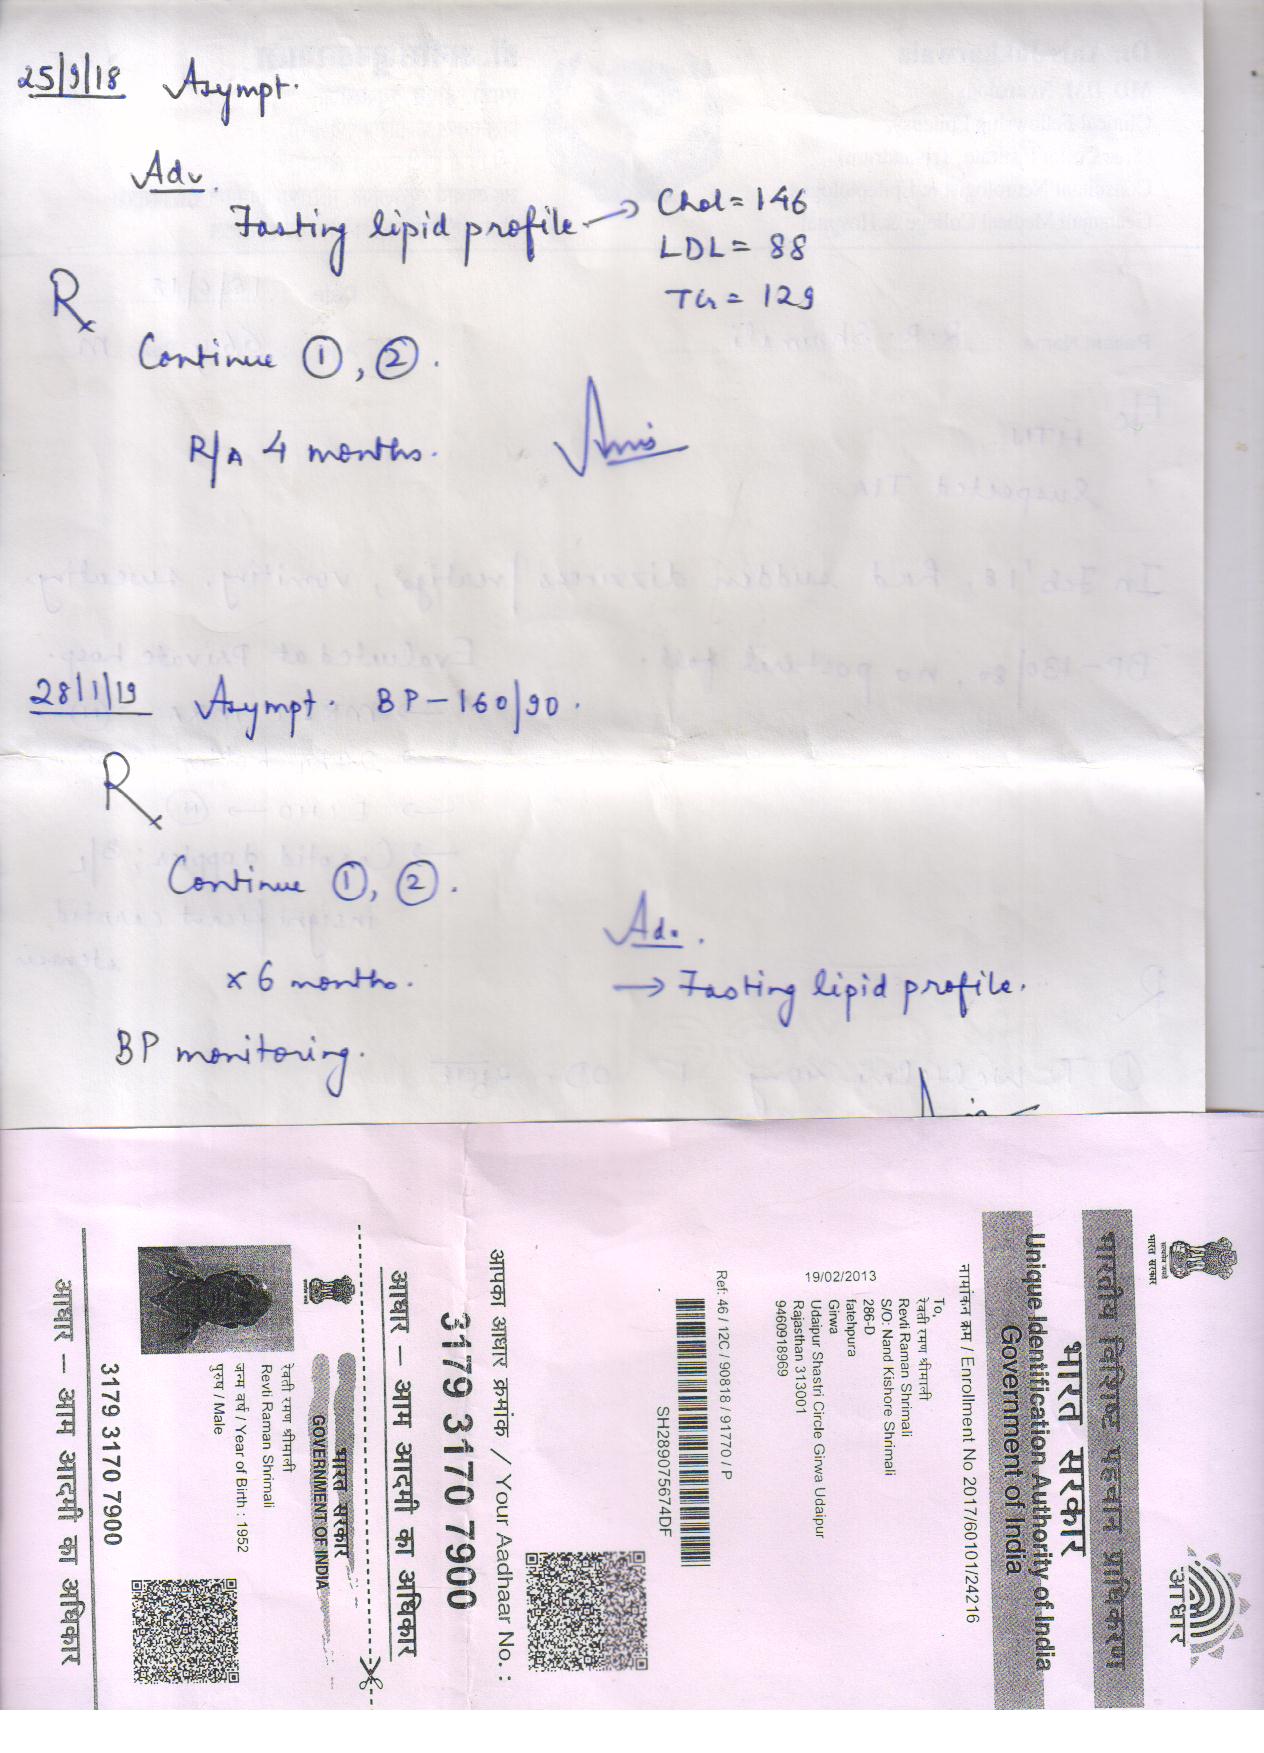 25/9/18 Asympt.
Adv.
Fasting lipid profile → Chol = 146
LDL = 88
TG = 129
Rx
Continue ①, ②.
R/A 4 months.
28/1/19 Asympt. BP - 160/90.
Rx
Continue ①, ②.
x 6 months.
Adv.
→ Fasting lipid profile.
BP monitoring.
भारत सरकार
भारतीय विशिष्ट पहचान प्राधिकरण
भारत सरकार
Unique Identification Authority of India
Government of India
आधार
नामांकन क्रम / Enrollment No 2017/60101/24216
To,
रेवती रमण श्रीमाली
Revti Raman Shrimali
S/O: Nand Kishore Shrimali
286-D
fatehpura
Girwa
Udaipur Shastri Circle Girwa Udaipur
Rajasthan 313001
9460918969
19/02/2013
Ref: 46 / 12C / 90818 / 91770 / P
SH289075674DF
आपका आधार क्रमांक / Your Aadhaar No. :
3179 3170 7900
आधार – आम आदमी का अधिकार
भारत सरकार
GOVERNMENT OF INDIA
रेवती रमण श्रीमाली
Revti Raman Shrimali
जन्म वर्ष / Year of Birth : 1952
पुरुष / Male
3179 3170 7900
आधार – आम आदमी का अधिकार